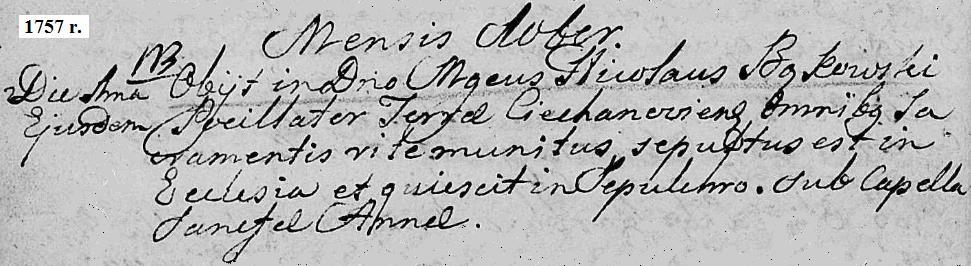 1757 r.
Mensis Aober.
NB
Die 8ma Obijt in Dno Mgcus Nicolaus Bąkowski
Ejusdem Pocillator Terræ Ciechanoviens, Omnibq Sa
cramentis rite munitus, sepultus est in
Ecclesia et quiescit in Sepulchro. sub Capella
Sanctæ Annæ.